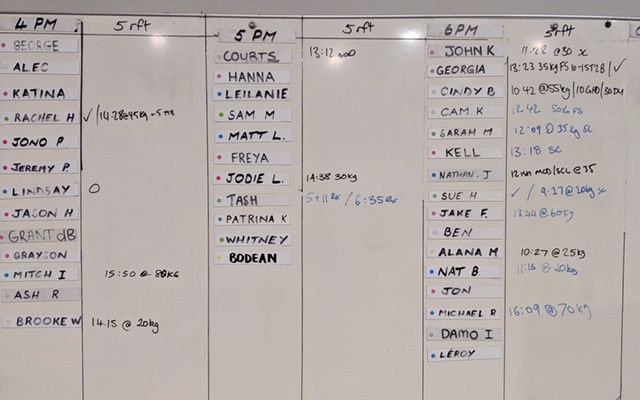 4 PM 5 rft
GEORGE
ALEC
KATINA
RACHEL H ✓/14.28@45kg
JONO P
JEREMY P.
LINDSAY O
JASON H
GRANT dB
GRAYSON
MITCH I 15:50 @ 80KG
ASH R
BROOKE W 14.15 @ 20kg
5 PM 5 rft
COURTS 13:12
HANNA
LEILANIE
SAM M
MATT L.
FREYA
JODIE L. 14:38 30kg
TASH 5+11 Rx / 6:35 Rx
PATRINA K
WHITNEY
BODEAN
6PM 5rft
JOHN K 11:22 @30 sc
GEORGIA 13:23 35kg FS 10-15T2B / ✓
CINDY B 10:42 @55kg
CAM K 12 42 50kg FS
SARAH M 12:09 @ 35kg SC
KELL 13:18 SC
NATHAN. J @ 35
SUE H ✓ / 9:27 @ 20kg sc
JAKE F. 13:44 @ 60kg
BEN
ALANA M 10:27 @ 25kg
NAT B. 11:15 @ 20kg
JON
MICHAEL R 16:09 @ 70kg
DAMO I
LEROY